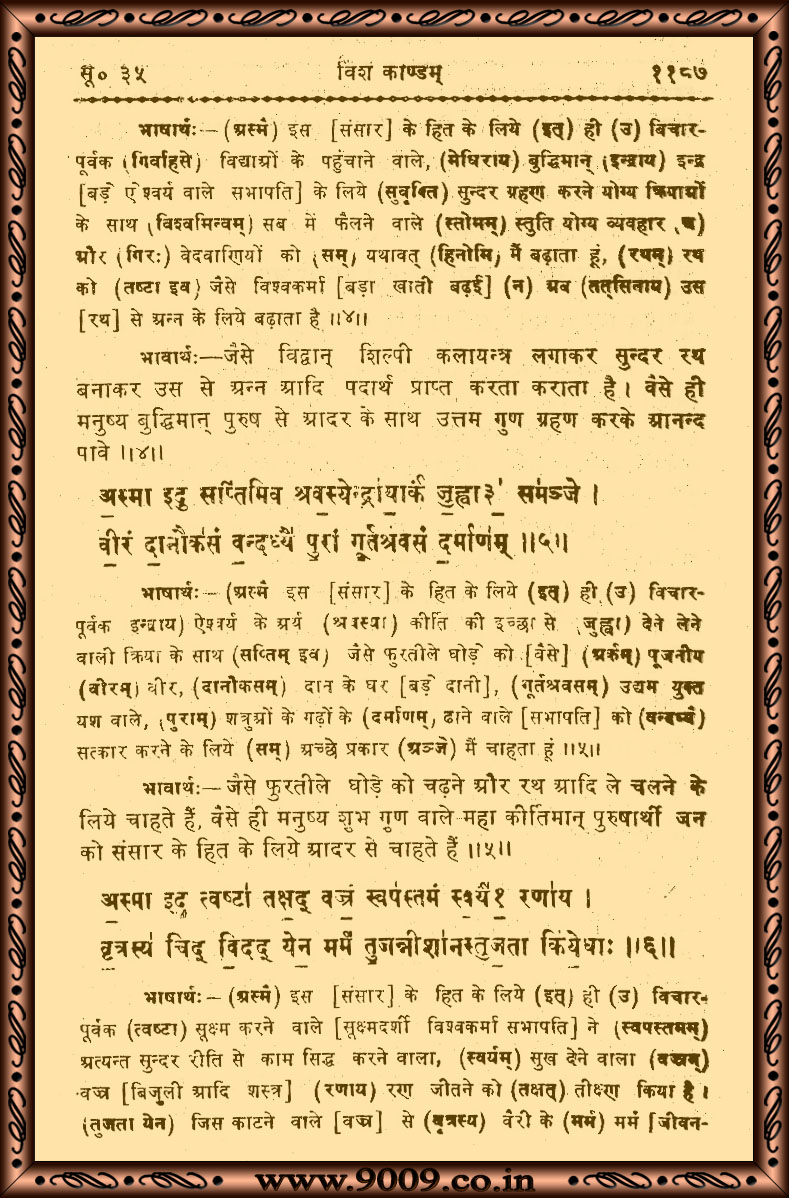 सू० ३५ विंश काण्डम् ११८७
भाषार्थः—(अस्मै) इस [संसार] के हित के लिये (इत्) ही (उ) विचार-
पूर्वक (गिर्वाहसे) विद्याओं के पहुंचाने वाले, (मेधिराय) बुद्धिमान् (इन्द्राय) इन्द्र
[बड़े ऐश्वर्य वाले सभापति] के लिये (सुवृक्ति) सुन्दर ग्रहण करने योग्य क्रियाओं
के साथ (विश्वमिन्वम्) सब में फैलने वाले (स्तोमम्) स्तुति योग्य व्यवहार (च)
और (गिरः) वेदवाणियों को (सम्) यथावत् (हिनोमि) मैं बढ़ाता हूं, (रथम्) रथ
को (तष्टा इव) जैसे विश्वकर्मा [बड़ा खाती बढ़ई] (न) अब (तत्सिनाय) उस
[रथ] से अन्न के लिये बढ़ाता है ॥४॥
भावार्थः—जैसे विद्वान् शिल्पी कलायन्त्र लगाकर सुन्दर रथ
बनाकर उस से अन्न आदि पदार्थ प्राप्त करता कराता है। वैसे ही
मनुष्य बुद्धिमान् पुरुष से आदर के साथ उत्तम गुण ग्रहण करके आनन्द
पावे ॥४॥
अ॒स्मा इदु॒ सप्ति॑मिव श्रव॒स्येन्द्रा॑या॒र्कं जु॒ह्वा॒३॒॑ सम॑ञ्जे ।
वी॒रं दा॒नौक॑सं व॒न्दध्यै॑ पु॒रां गू॒र्तश्र॑वसं द॒र्माण॑म् ॥५॥
भाषार्थः—(अस्मै इस [संसार] के हित के लिये (इत्) ही (उ) विचार-
पूर्वक इन्द्राय) ऐश्वर्य के अर्थ (श्रवस्या) कीर्ति की इच्छा से (जुह्वा) देने लेने
वाली क्रिया के साथ (सप्तिम् इव) जैसे फुरतीले घोड़े को [वैसे] (अर्कम्) पूजनीय
(वीरम्) वीर, (दानौकसम्) दान के घर [बड़े दानी], (गूर्तश्रवसम्) उद्यम युक्त
यश वाले, (पुराम्) शत्रुओं के गढ़ों के (दर्माणम्) ढाने वाले [सभापति] को (वन्दध्यै)
सत्कार करने के लिये (सम्) अच्छे प्रकार (अञ्जे) मैं चाहता हूं ॥५॥
भावार्थः—जैसे फुरतीले घोड़े को चढ़ने और रथ आदि ले चलने के
लिये चाहते हैं, वैसे ही मनुष्य शुभ गुण वाले महा कीर्तिमान् पुरुषार्थी जन
को संसार के हित के लिये आदर से चाहते हैं ॥५॥
अ॒स्मा इदु॒ त्वष्टा॑ तक्ष॒द् वज्रं॒ स्वप॑स्तमं स्व॒र्यं॑१॒॑ रणा॑य ।
वृ॒त्रस्य॑ चिद् वि॒दद् येन॒ मर्म॑ तु॒जन्नीशा॑नस्तु॒जता कि॑ये॒धाः ॥६॥
भाषार्थः—(अस्मै) इस [संसार] के हित के लिये (इत्) ही (उ) विचार-
पूर्वक (त्वष्टा) सूक्ष्म करने वाले [सूक्ष्मदर्शी विश्वकर्मा सभापति] ने (स्वपस्तमम्)
अत्यन्त सुन्दर रीति से काम सिद्ध करने वाला, (स्वर्यम्) सुख देने वाला (वज्रम्)
वज्र [बिजुली आदि शस्त्र] (रणाय) रण जीतने को (तक्षत्) तीक्ष्ण किया है।
(तुजता येन) जिस काटने वाले [वज्र] से (वृत्रस्य) वैरी के (मर्म) मर्म [जीवन-
www.9009.co.in